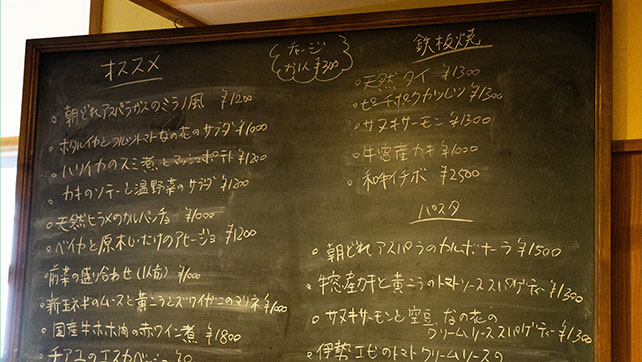 オススメ
。朝どれアスパラガスのミラノ風 ¥1200
。ホタルイカとフルーツトマトなの花のサラダ ¥1000
。ハリイカのスミ煮とマッシュポテト ¥1200
。カキのソテーと温野菜のサラダ ¥1200
。天然ヒラメのカルパッチョ ¥1000
。ベイカと原木しいたけのアヒージョ ¥1200
。前菜の盛り合わせ(1人前) ¥1000
。新玉ネギのムースと黄こうとズワイガニのマリネ ¥1000
。国産牛ホホ肉の赤ワイン煮 ¥1800
。チアユのエスカベッシュ
チャージ
お1人¥300
鉄板焼
。天然タイ ¥1300
。ピーチポークカツレツ ¥1300
。サヌキサーモン ¥1300
。牛窓産カキ ¥1000
。和牛イチボ ¥2500
パスタ
。朝どれアスパラのカルボナーラ ¥1500
。牛窓産カキと黄こうのトマトソーススパゲティー ¥1300
。サヌキサーモンと空豆 なの花の
クリームソーススパゲティー ¥1300
。伊勢エビのトマトクリームソースの